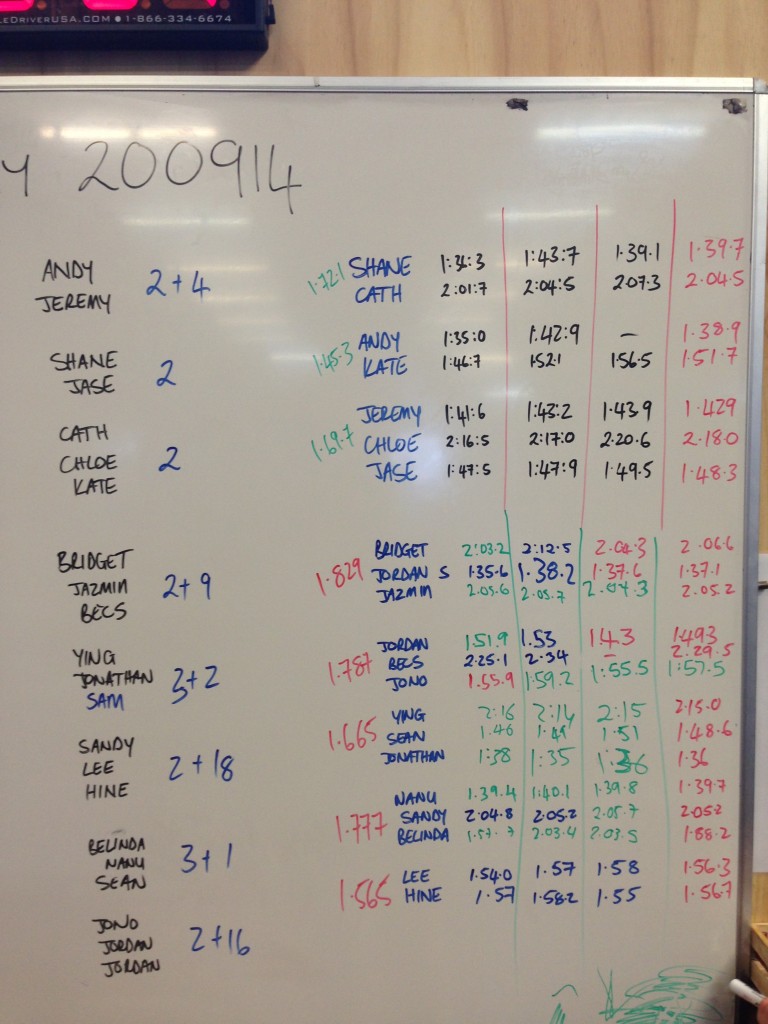 LEDRIVERUSA.COM • 1-866-334-6674
Y 200914
ANDY
JEREMY 2+4
SHANE
JASE 2
CATH
CHLOE 2
KATE
BRIDGET
JAZMIN 2+9
BECS
YING
JONATHAN 3+2
SAM
SANDY
LEE 2+18
HINE
BELINDA
NANU 3+1
SEAN
JONO
JORDAN 2+16
JORDAN
SHANE 1:31:3 1:43:7 1:39.1 1:39.7
1:21.1 CATH 2:01:7 2:04:5 2:07:3 2:04.5
ANDY 1:35:0 1:42:9 – 1:38.9
1:49.3 KATE 1:46:7 1:52:1 1:56:5 1:51.7
JEREMY 1:41:6 1:45:2 1:43.9 1:42.9
1:69.7 CHLOE 2:16:5 2:17:0 2:20.6 2.18.0
JASE 1:47:5 1:47:9 1:49.5 1.48.3
BRIDGET 2:03.2 2:12.5 2:04.3 2.06.6
1.829 JORDAN S 1:35.6 1:38.2 1:37.6 1.37.1
JAZMIN 2:05.6 2:05.7 2:04.3 2.05.2
JORDAN 1:51.9 1.53 1.43 1.49.3
1.787 BECS 2:25.1 2:34 2:29.5
JONO 1:55.9 1:59.2 1:55.5 1:57.5
YING 2:16 2:14 2:15 2:15.0
1.665 SEAN 1:46 1:49 1:51 1:48.6
JONATHAN 1:38 1:35 1:36 1:36
NANU 1:39.4 1:40.1 1:39.8 1:39.7
1.777 SANDY 2:04.8 2:05.2 2:05.7 2:05.2
BELINDA 1:57.7 2:03.4 2:03.5 1:58.2
LEE 1:54.0 1:57 1:58 1:56.3
1.565 HINE 1:57 1:58.2 1:55 1:56.7